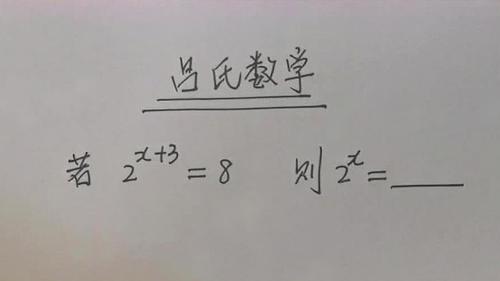 吕氏数学
若 2^{x+3} = 8 则 2^x = ____